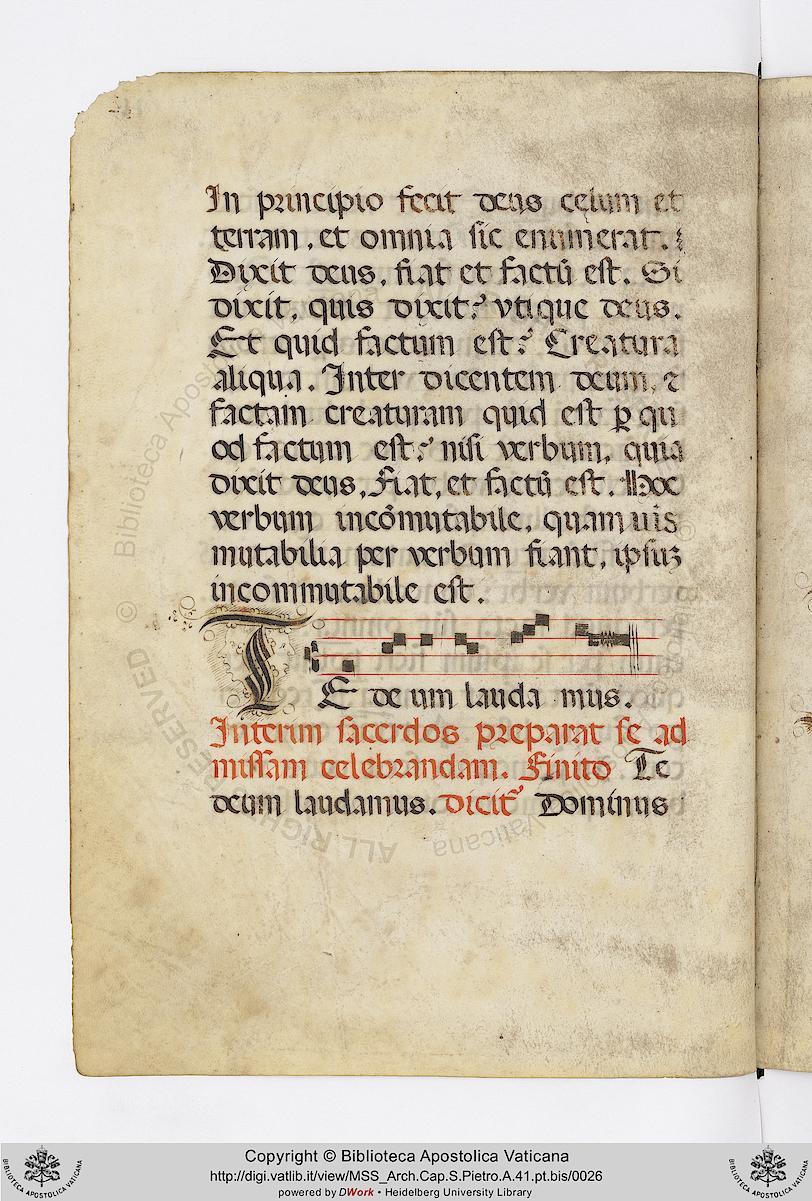 In principio fecit deus celum et
terram, et omnia sic enumerat. :
Dixit deus, fiat et factũ est. Si
dixit, quis dixit? vtique deus.
Et quid factum est? Creatura
aliqua. Inter dicentem deum, ⁊
factam creaturam quid est ꝑ qu
od factum est? nisi verbum, quia
dixit deus, Fiat, et factũ est. Hoc
verbum incõmutabile, quamuis
mutabilia per verbum fiant, ipsuꝫ
incommutabile est.
TE deum lauda mus.
Interim sacerdos preparat se ad
missam celebrandam. Finito Te
deum laudamus. dicit᷑ Dominus
Biblioteca Apostolica Vaticana
© ALL RIGHTS RESERVED
Copyright © Biblioteca Apostolica Vaticana
http://digi.vatlib.it/view/MSS_Arch.Cap.S.Pietro.A.41.pt.bis/0026
powered by DWork • Heidelberg University Library
BIBLIOTECA APOSTOLICA VATICANA
BIBLIOTECA APOSTOLICA VATICANA